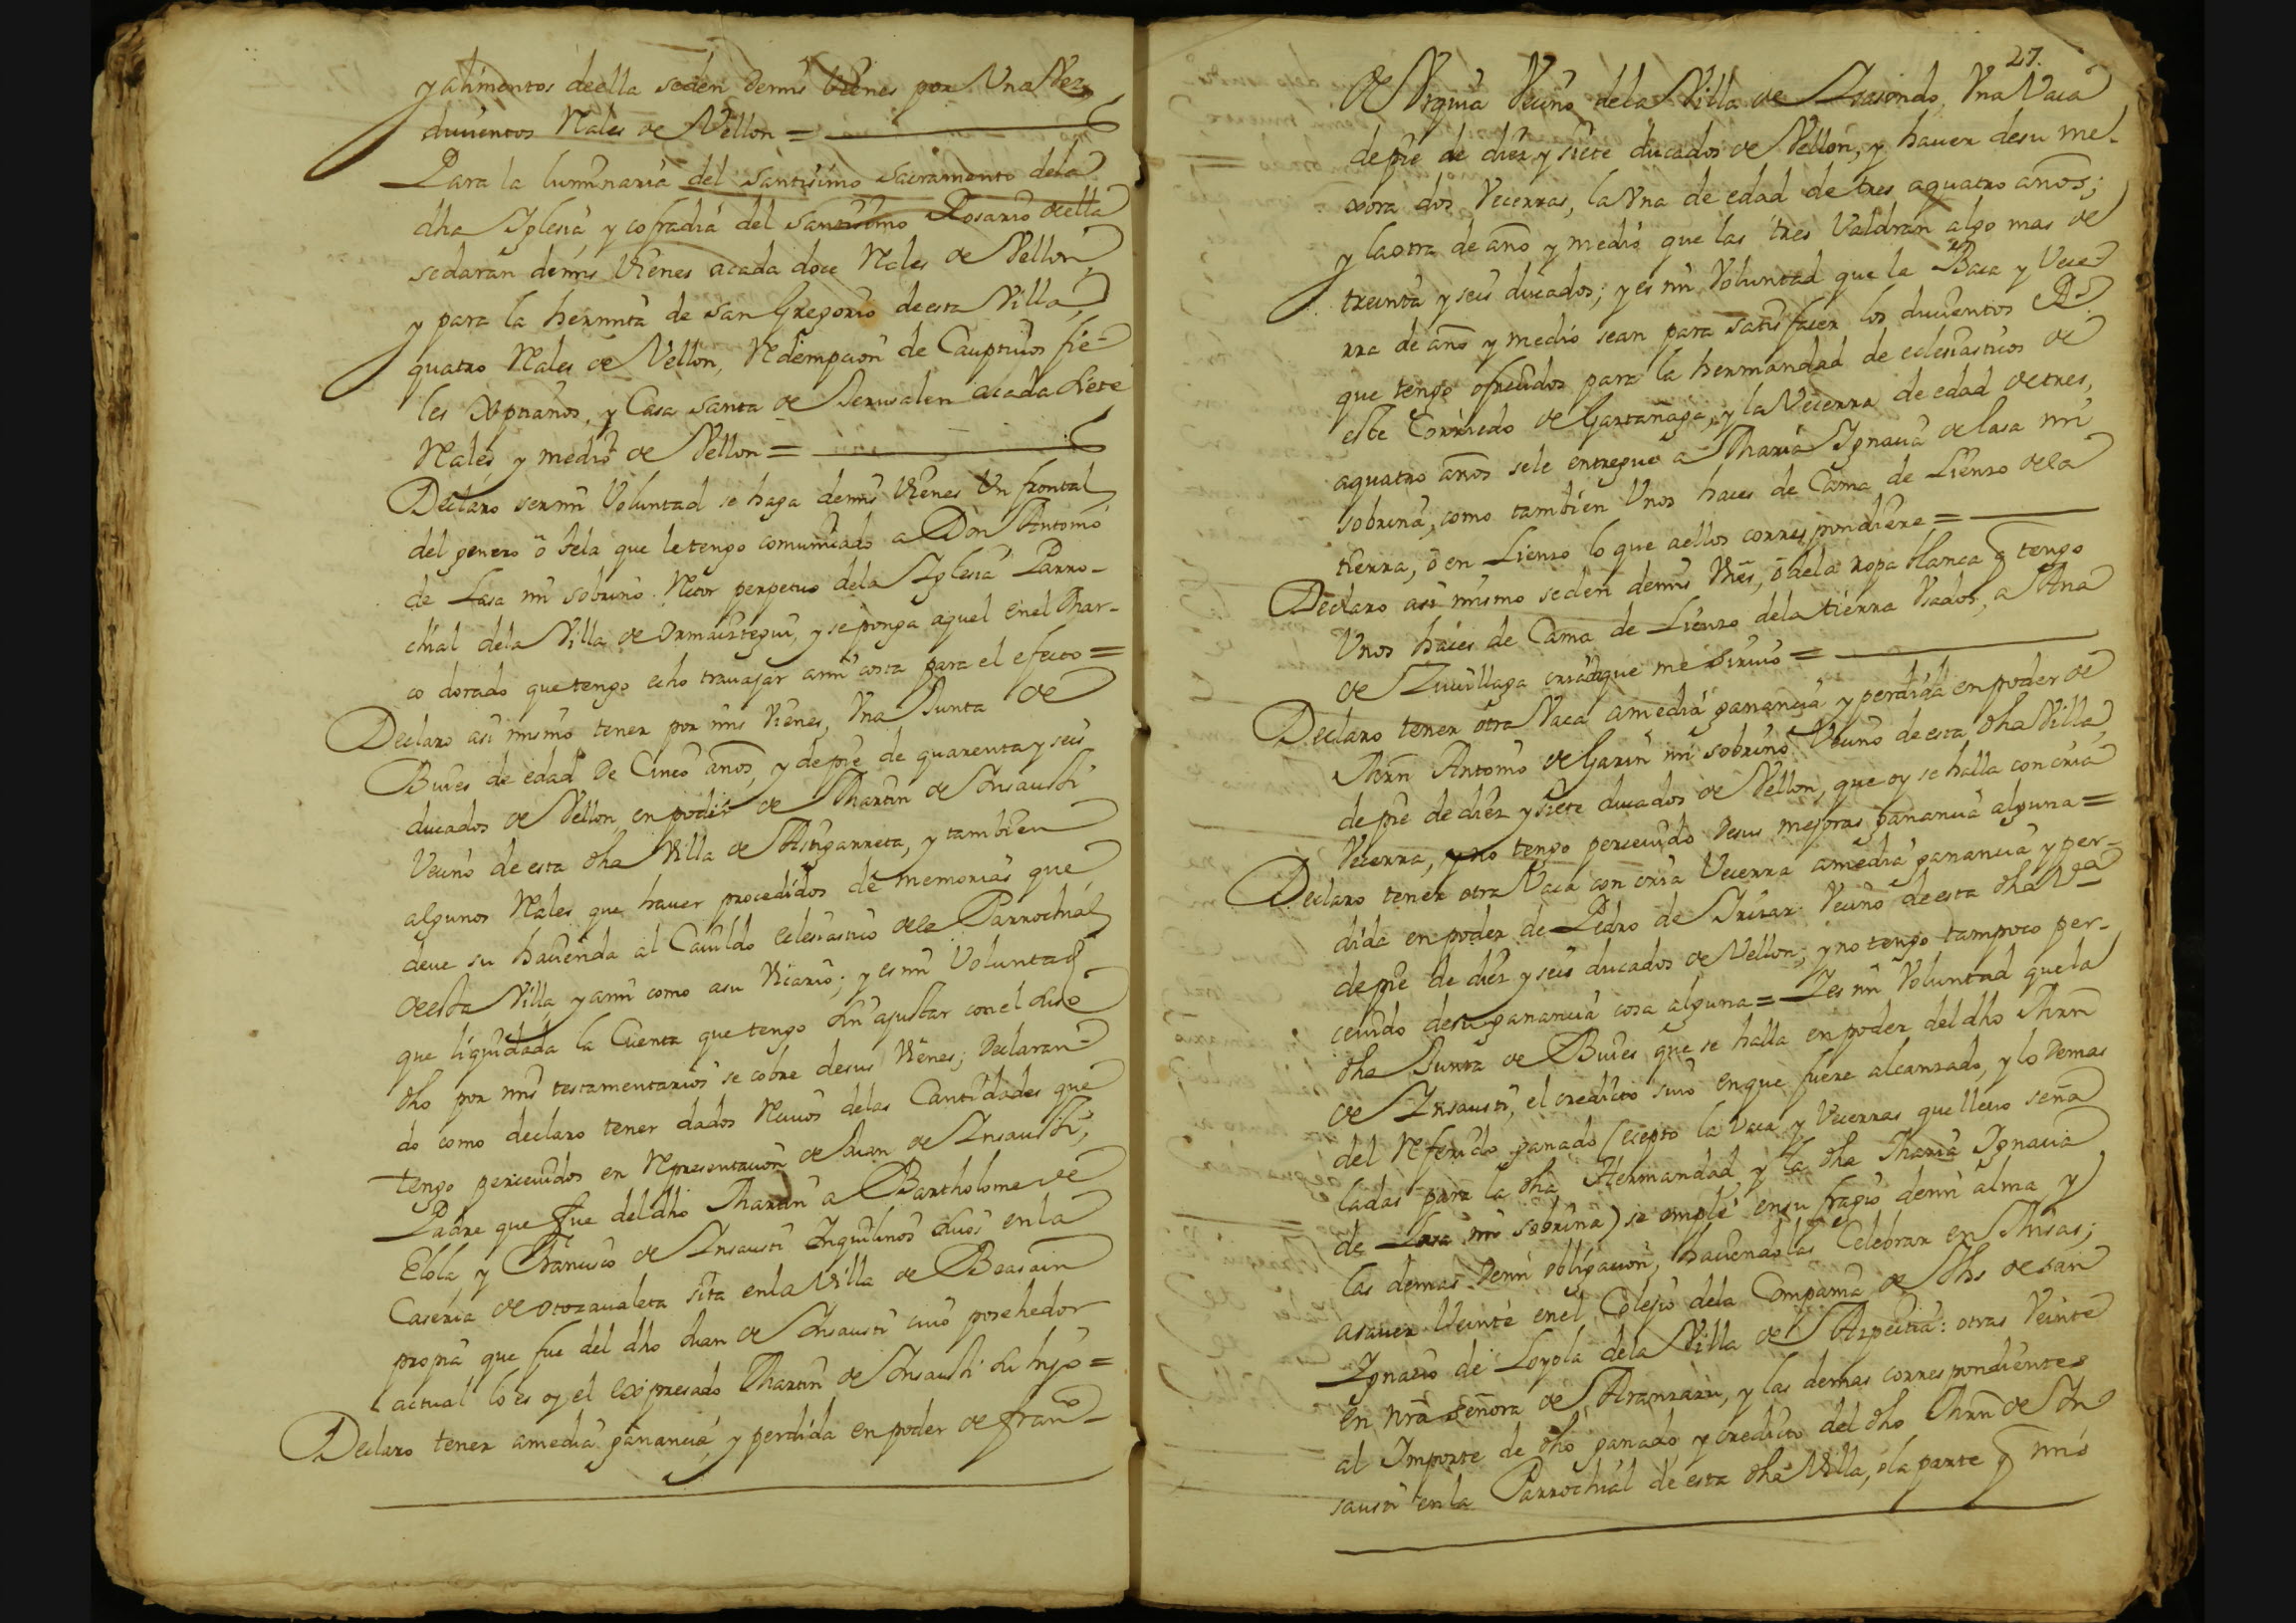 y alimentos de ella se den de mis Vienes por Una Vez
ducientos Rales de Vellon =
Para la luminaria del santisimo sacramento dela
dha Iglesia y cofradia del santisimo Rosario de ella
se daran de mis Vienes acada doce Rales de Vellon,
y para la hermita de san Gregorio de esta Villa,
quatro Rales de Vellon, Redempcion de Cauptivos fie-
les Xptianos, y Casa santa de Jerusalen acada siete
Rales y medio de Vellon =
Declaro ser mi Voluntad se haga de mis Vienes Un frontal
del genero ô tela que le tengo comunicado a Don Antonio
de Lasa mi sobrino Retor perpetuo dela Iglesia Parro-
chial dela Villa de Ormaiztegui, y se ponga aquel en el Mar-
co dorado que tengo echo travajar ami costa para el efecto =
Declaro asi mismo tener por mis Vienes, Una Junta de
Bueies de edad de Cinco años, y de pie de quarenta y seis
ducados de Vellon en poder de Martin de Insausti
Vecino de esta dha Villa de Astigarreta, y tambien
algunos Rales que haver procedidos de memorias que
deve su havienda al Cavildo eclesiastico dela Parrochial
de esta Villa, y ami como asu Vicario; y es mi Voluntad
que liquidada la Cuenta que tengo sin ajustar con el suso
dho por mis testamentarios se cobre desus Vienes; Declaran-
do como declaro tener dados Recivos delas Cantidades que
tengo percevidos en Representacion de Juan de Insausti,
Padre que fue del dho Martin a Bartholome de
Elola, y Francisco de Insausti Inquilinos suios en la
Caseria de Otozavaleta sita enla Villa de Beasain
propia que fue del dho Juan de Insausti cuio posehedor
actual lo es oy el expresado Martin de Insausti su hijo =
Declaro tener amedia ganancia, y perdida en poder de fran.co
27.
de Urquia Vecino dela Villa de Isasondo, Una Vaca
de pie de diez y siete ducados de Vellon, y haver desu me-
xora dos Vecerras, la Una de edad de tres aquatro años;
y la otra de año y medio que las tres Valdran algo mas de
treinta y seis ducados; y es mi Voluntad que la Baca y Vece-
rra de año y medio sean para satisfacer los ducientos Rs
que tengo ofrecidos para la hermandad de eclesiasticos de
este Corriedo de Gartañaga, y la Vecerra de edad de tres,
aquatro años se le entregue a Maria Ignacia de Lasa mi
sobrina, como tambien Unos haces de Cama de Lienzo dela
tierra, ô en Lienzo lo que aellos correspondiere =
Declaro asi mismo se den de mis Vies, ô dela ropa blanca q tengo
Unos haces de Cama de Lienzo dela tierra Usados, a Ana
de Zuvillaga criada que me sirvio =
Declaro tener otra Vaca amedia ganancia y perdida en poder de
Mrn Antonio de Garin mi sobrino Vecino de esta dha Villa,
de pie de diez y siete ducados de Vellon, que oy se halla con cria
Vecerra, y no tengo percevido desus mejoras ganancia alguna =
Declaro tener otra Vaca con cria Vecerra amedia ganancia y per-
dida en poder de Pedro de Irizar Vecino de esta dha Va
de pie de diez y seis ducados de Vellon; y no tengo tampoco per-
cevido desu ganancia cosa alguna = Y es mi Voluntad que la
dha Junta de Bueies que se halla en poder del dho Mrn
de Insausti, el credicto suio en que fuere alcanzado, y lo demas
del Referido ganado (ecepto la Vaca y Vecerras que llevo seña
ladas para la dha Hermandad, y la dha Maria Ignacia
de Lasa mi sobrina) se emplé en su fragio de mi alma y
las demas de mi obligacion, haciendolas Celebrar en Misas;
asaver Veinte en el Colejio dela Compania de Jhs de san
Ignacio de Loyola dela Villa de Azpeitia: otras Veinte
en nra señora de Aranzazu, y las demas correspondientes
al Importe de dho ganado y credicto del dho Mrn de In
sausti en la Parrochial de esta dha Villa, ô la parte q mis